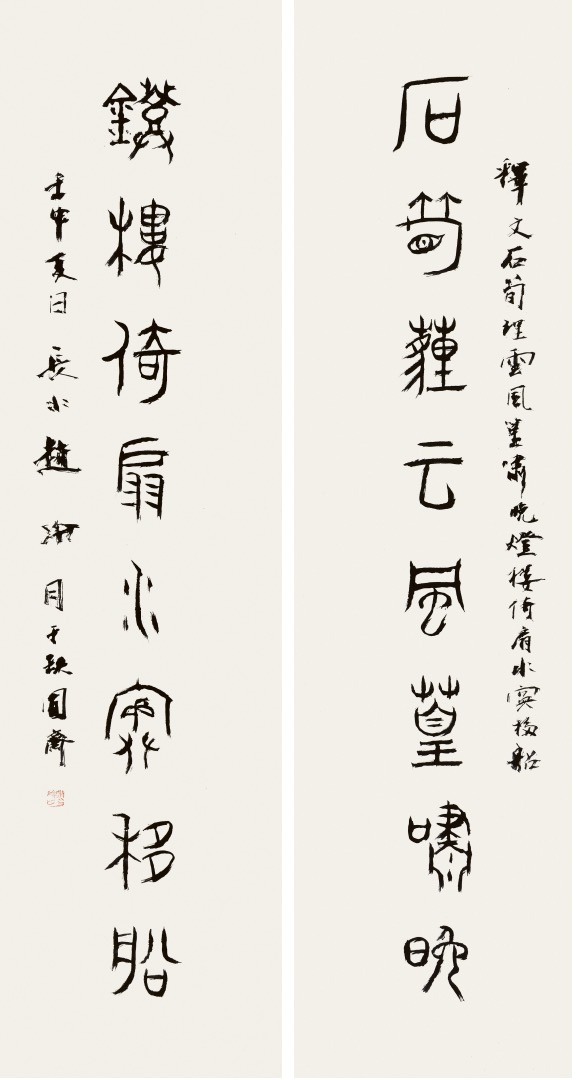 釋文石筍埋雲風篁嘯晚燈樓倚扇水移船
石筍薶云風篁嘯晚
鐙樓倚扇水移船
壬申夏日長水趙冷月于缺圓齋